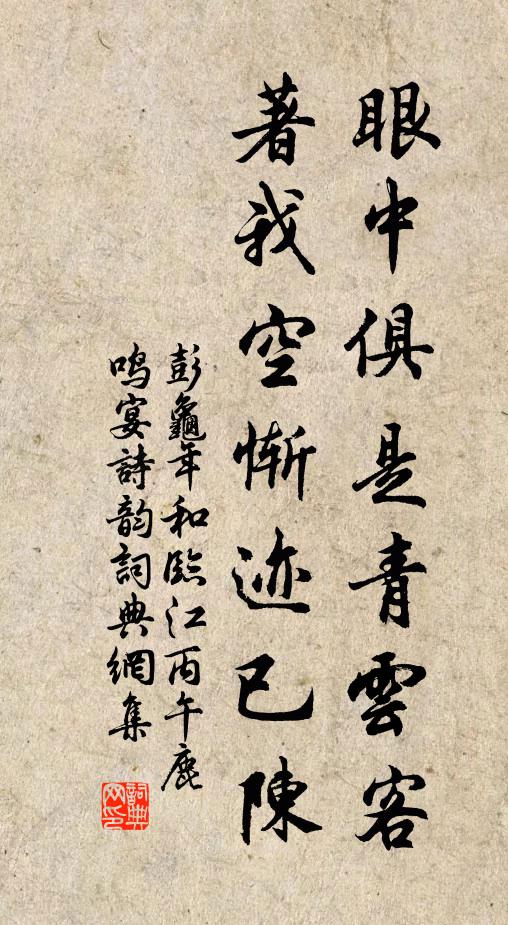 眼中俱是青雲客
著我空慚迹已陳
彭龜年和臨江丙午鹿
鳴宴詩韵詞典網集
詞典
网印